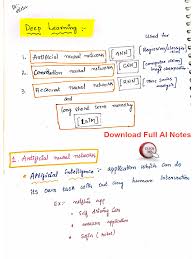 Deep Learning :-
Used for
1. Artificial neural networks [ANN] (Regression/classifi
2. Convolution neural networks [CNN] (computer vision
3. Recurrent neural networks [RNN] (Time series analysis)
and
long short term memory
[LSTM]
Download Full AI Notes
1. Artificial neural networks
Artificial Intelligence :- application which can do
its own task with out any human intervention
Ex:- netflix app
self driving cars
amazon application